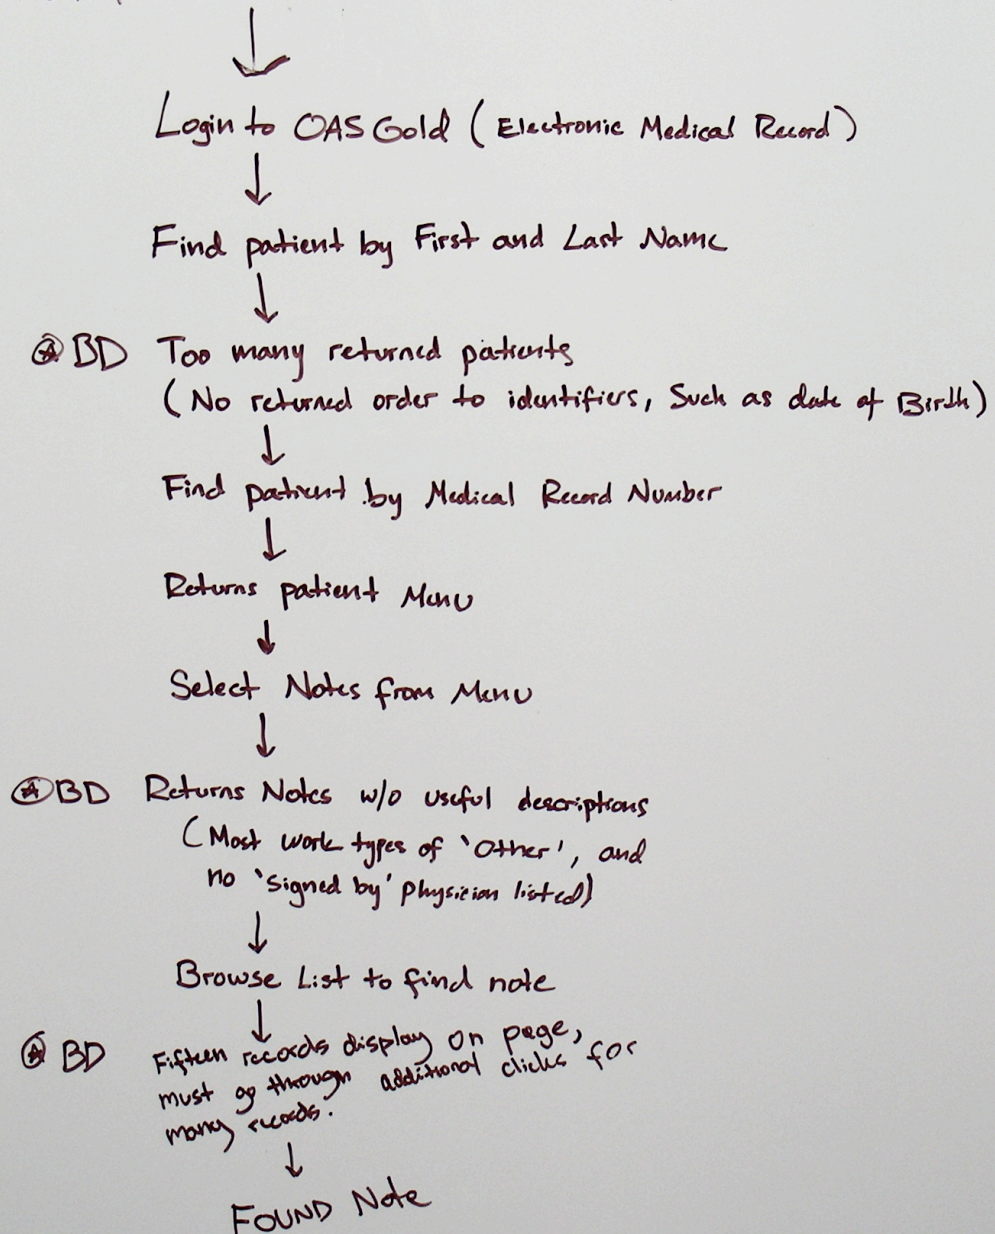 Login to OAS Gold (Electronic Medical Record)
Find patient by First and Last Name
BD Too many returned patients
(No returned order to identifiers, Such as date of Birth)
Find patient by Medical Record Number
Returns patient Menu
Select Notes from Menu
BD Returns Notes w/o useful descriptions
(Most work types of 'Other', and
no 'signed by' physician listed)
Browse List to find note
BD Fifteen records display on page,
must go through additional clicks for
many records.
FOUND Note